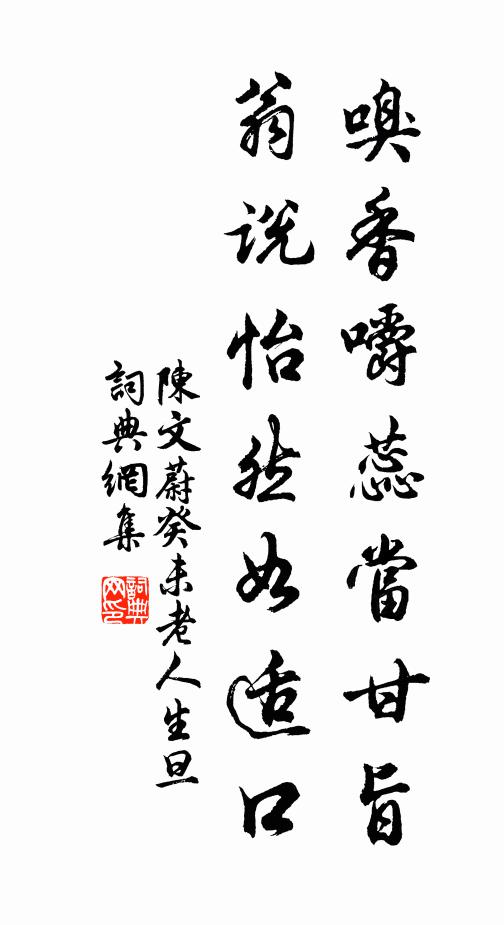 嗅香嚼蕊當甘旨
翁說怡然如适口
陳文蔚癸未老人生旦
詞典網集
詞典網印